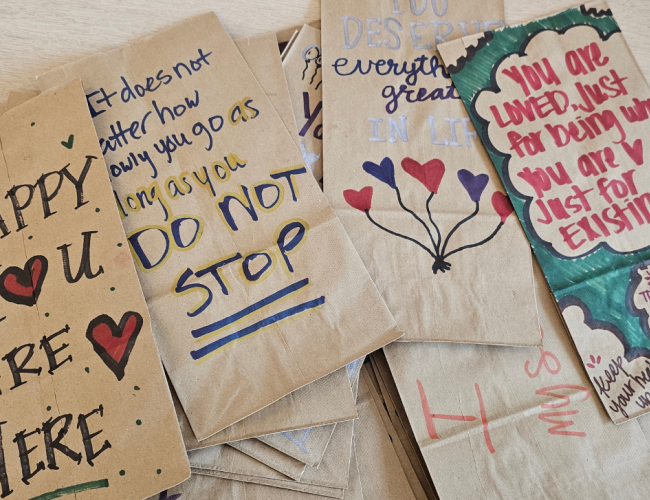 APPY
U
RE
HERE
It does not
atter how
owly you go as
long as you
DO NOT
STOP
YOU
DESERVE
everyth
great
IN LIF
You are
LOVED, Just
for being wh
You are
Just for
EXistin
Keep
your hea